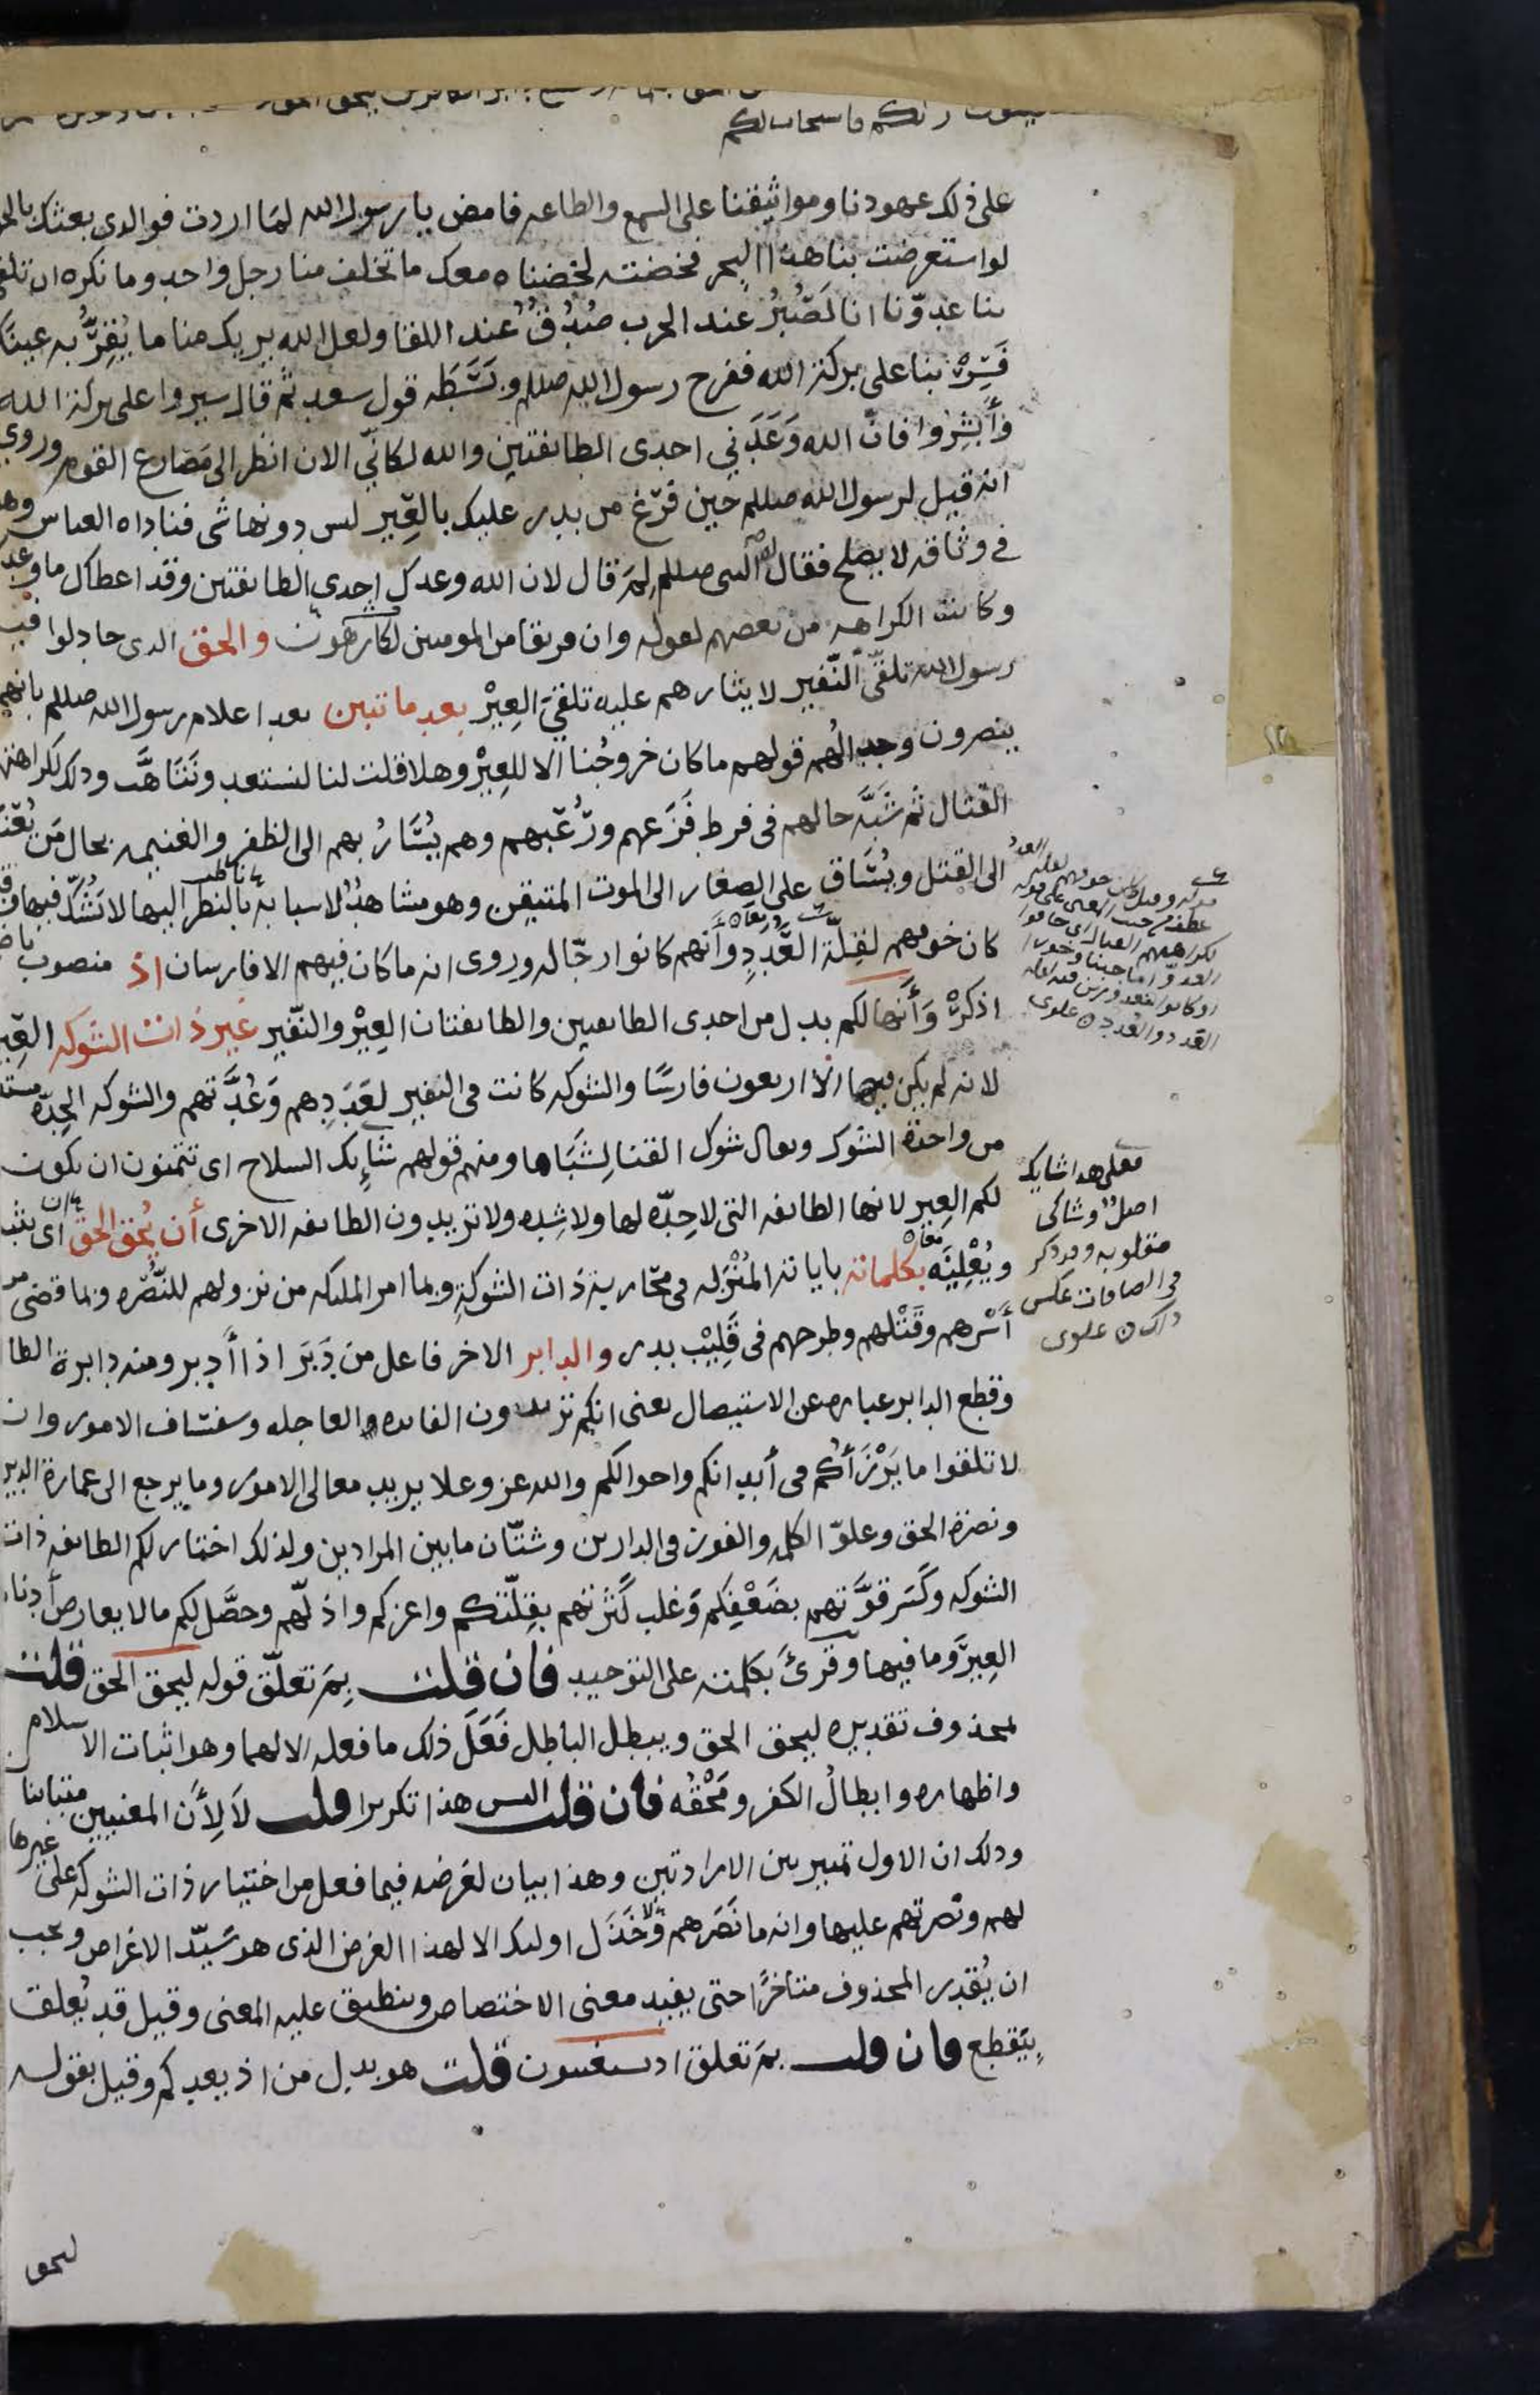 على ذلك عهودنا ومواثيقنا على السمع والطاعه فامض يا رسول الله لما اردت فوالدى بعثك بالحق
لو استعرضت بنا هذا البحر فخضته لخضناه معك ما تخلف منا رجل واحد وما نكره ان تلقى
بنا عدوّنا انا لَصُبُرُ عند الحرب صُدُقُ عند اللقا ولعل الله يريك منا ما يُقِرُّ به عينَك
فَسِرْ بنا على بركة الله ففرح رسول الله صللم وبَسَّطَه قول سعد ثم قال سيروا على بركة الله
وأَبشِروا فان الله وَعَدَني احدى الطائفتين والله لكأنّي الان انظر الى مَصارع القوم وروى
انه قيل لرسول الله صللم حين فرّغ من بدر عليك بالعِير لس دونها شى فناداه العباس وهو
فى وثاقه لا يصلح فقال له النبى صللم لِمَ قال لان الله وعدك احدى الطائفتين وقد اعطاك ما وعدك
وكانت الكراهه من بعضهم لقوله وان فريقا من المومنين لكارهون والحق الدى جادلوا فيه
رسول الله تلقّى النّفير لايثارهم عليه تلقى العِيْر بعد ما تبين بعد اعلام رسول الله صللم بانهم
ينصرون وجدالُهم قولهم ما كان خروجُنا الا للعِيْر وهلا قلت لنا لنستعد ونَتَأهَّب ودلك لكراهتهم
القتال ثم شَبَّه حالهم فى فرط فَزَعهم ورُعْبهم وهم يُسَارُ بهم الى الظفر والغنيمه بحال من يُعْتَل
الى القتل ويُسَاق على الصغار الى الموت المتيقن وهو مشاهدُ لاسبابه بالنظر اليها لا يَشُكّ فيها وقيل
كان خوفهم لقِلّة العَدَدِ وأنهم كانوا رجّاله وروى انه ما كان فيهم الا فارسان اذ منصوب باضمار
اذكرْ وَأَنها لكم بدل من احدى الطائفتين والطائفتان العِيْر والنّفير غير ذات الشوكه العِير
لانه لم يكن فيها الا اربعون فارسًا والشوكه كانت فى النفير لعَدَدِهم وَعُدَّتهم والشوكه الحِدّه مستعاره
من واحدة الشوك ويقال شوك القنا لِشَبَاها ومنه قولهم شَائِك السلاح اى تتمنون ان تكون
لكم العِير لانها الطائفه التى لا حِدّه لها ولا شِده ولا تريدون الطائفه الاخرى أن يُحق الحق اى يثبته
ويُعْلِيَه بكلماته باياته المُنْزَله فى محاربة ذات الشوكة وبما امر الملئكه من نزولهم للنُّصْره وبما قضى من
أَسْرهم وقَتْلهم وطرحهم فى قَلِيْب بدر والدابر الاخر فاعل من دَبَر اذا أَدبر ومنه دابرة الطائر
وقطع الدابر عباره عن الاستيصال يعنى انكم تريدون الفايده العاجله وسفساف الامور وان
لا تلقوا ما يَرْزَأُكم فى أبدانكم واحوالكم والله عز وعلا يريد معالى الامور وما يرجع الى عمارة الدين
ونصرة الحق وعلوّ الكلمه والفوز فى الدارين وشتّان ما بين المرادين ولذلك اختار لكم الطائفه ذات
الشوكه وكَسَر قوَّتهم بضَعْفِكم وَغلب كَثْرتهم بقِلّتكم واعزكم واذلّهم وحصَّل لكم ما لا يعارض أدناه
العِيرَ وما فيها وقرئ بكلمته على التوحيد فان قلت بِمَ تعلّق قوله ليحق الحق قلت
بمحذوف تقديره ليحق الحق ويبطل الباطل فَعَلَ ذلك ما فعله الا لهما وهو اثبات الاسلام
واظهاره وابطالُ الكفر ومَحْقُه فان قلت اليس هذا تكريرا قلت لا لِأَن المعنيين متباينان
ودلك ان الاول تمييز بين الارادتين وهذا بيان لغرضه فيما فعل من اختيار ذات الشوكه على غيرها
لهم ونصرتهم عليها وانه ما نَصَرهم ولا خَذَل اولئك الا لهذا الغرض الذى هو سَيّد الاغراض ويجب
ان يُقدر المحذوف متأخرًا حتى يفيد معنى الاختصاص وينطبق عليه المعنى وقيل قد يُعلق
بِيَقطع فان قلت بم تعلق اذ تستغيثون قلت هو بدل من اذ يعدكم وقيل بقوله
فعلى هدا شايك
اصلٌ وشاكى
مقلوبه وقد ذكر
فى الصافات عكس
ذلك علوى
ليحق